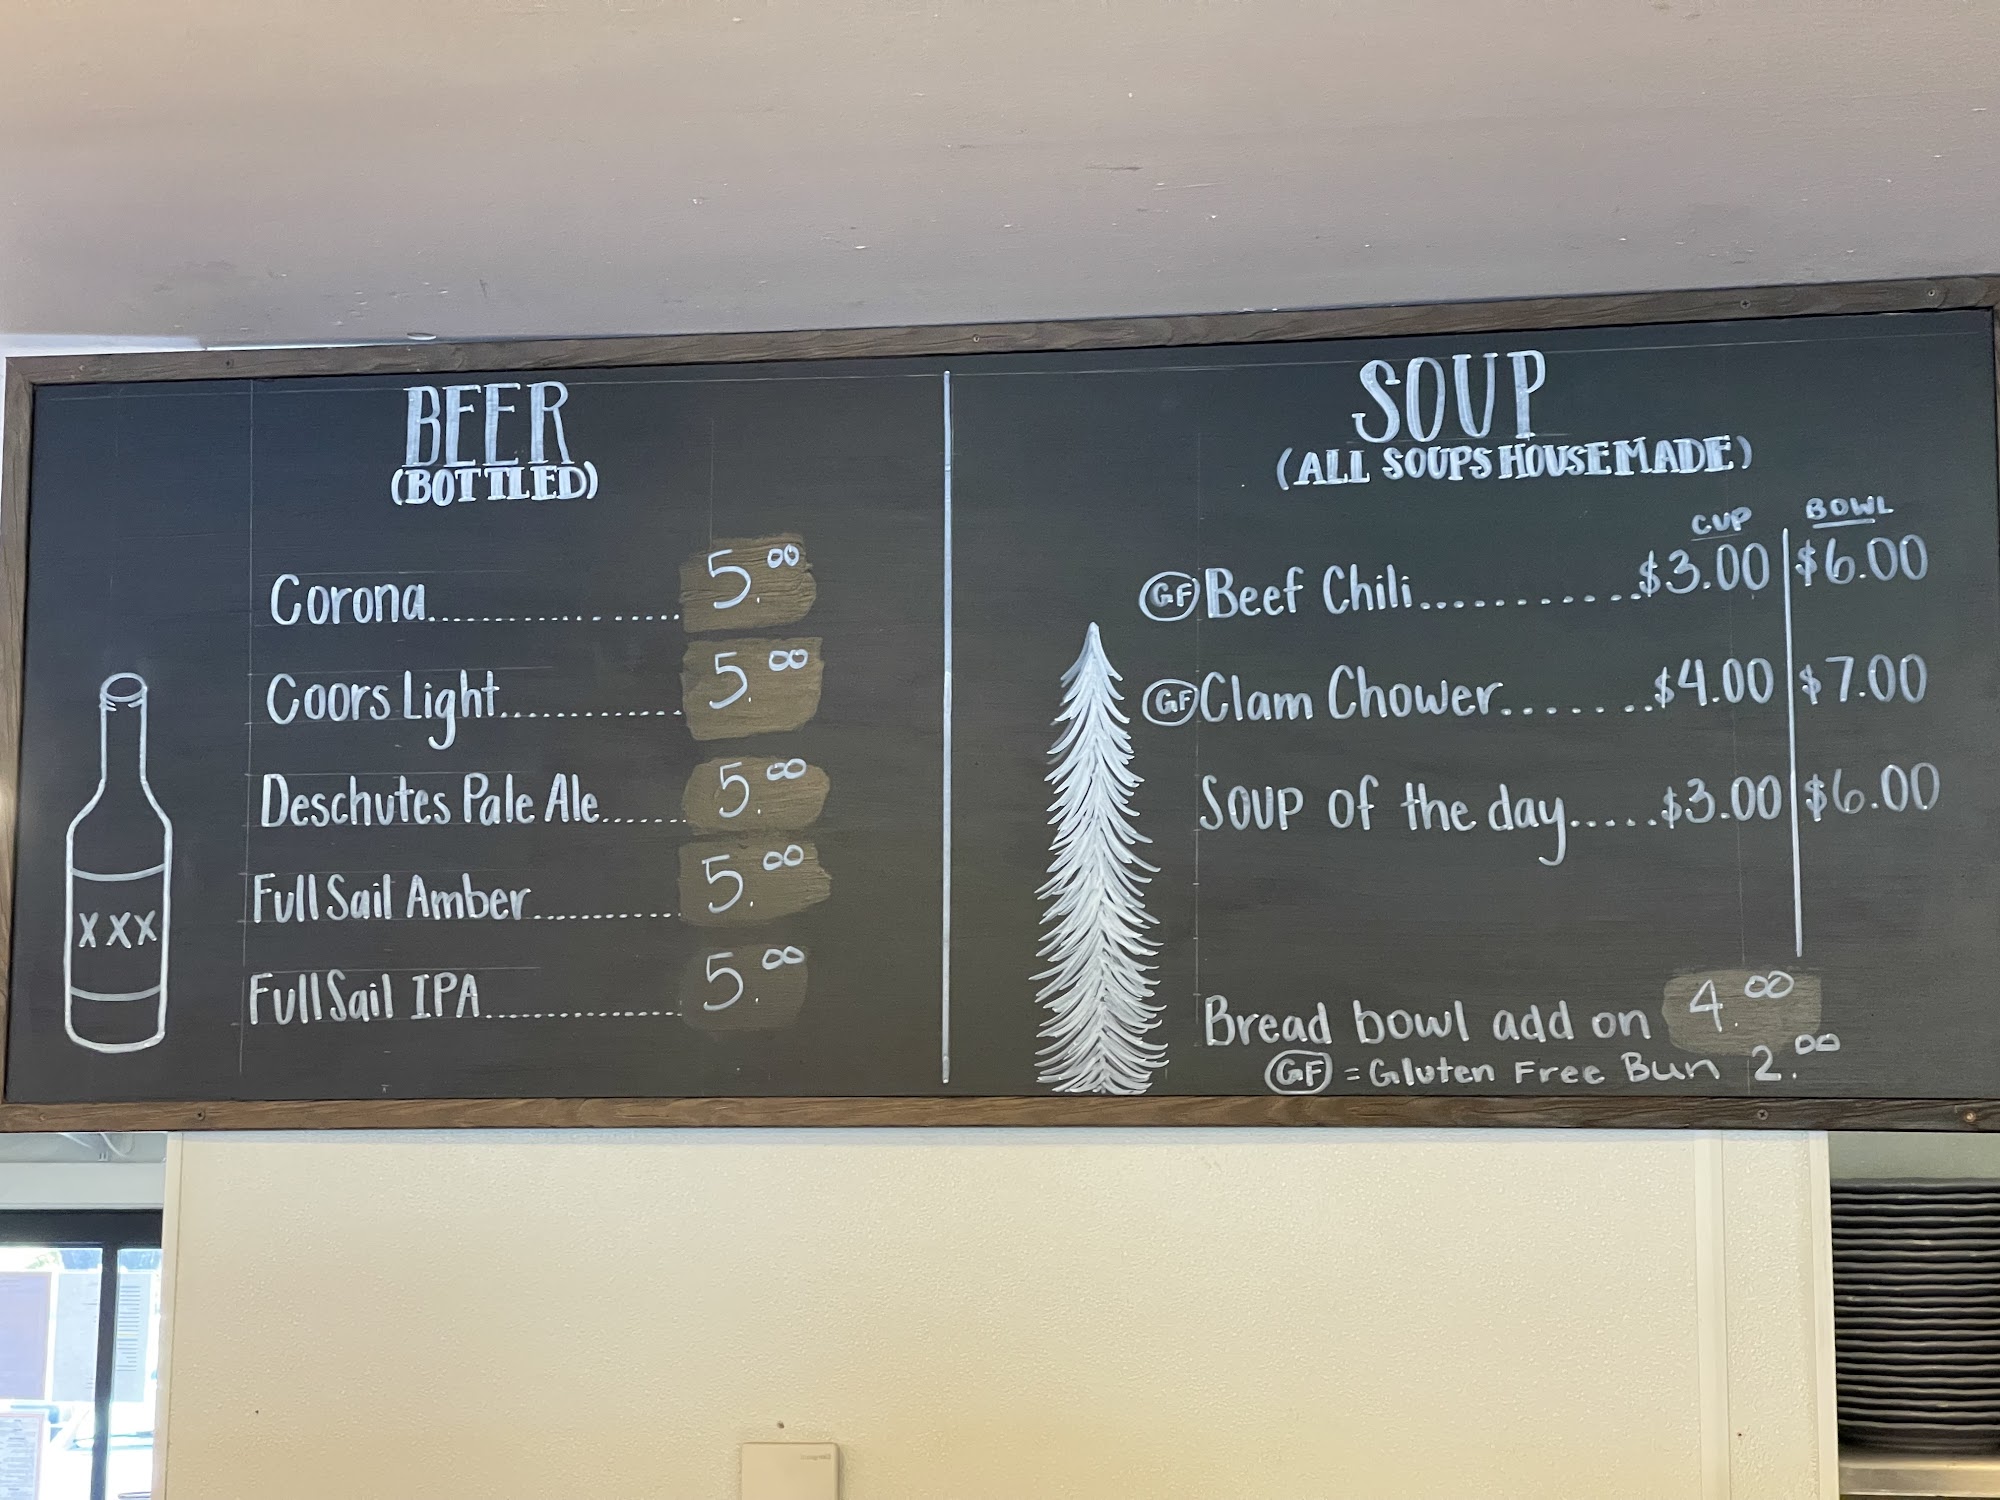 BEER
(BOTTLED)
Corona................... 5.00
Coors Light............. 5.00
Deschutes Pale Ale...... 5.00
Full Sail Amber........... 5.00
Full Sail IPA................ 5.00
XXX
SOUP
(ALL SOUPS HOUSEMADE)
CUP BOWL
GF Beef Chili............$3.00 $6.00
GF Clam Chower.......$4.00 $7.00
Soup of the day.....$3.00 $6.00
Bread bowl add on 4.00
GF = Gluten Free Bun 2.00